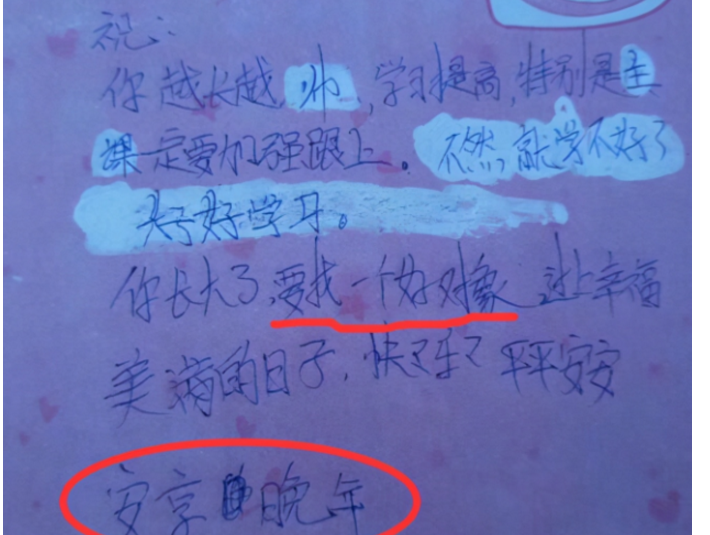 祝:
你越长越帅,学习提高,特别是主
课一定要加强跟上。不然,就学不好了
好好学习。
你长大了,要找一个好对象 过上幸福
美满的日子,快快乐乐 平平安安
安享晚年